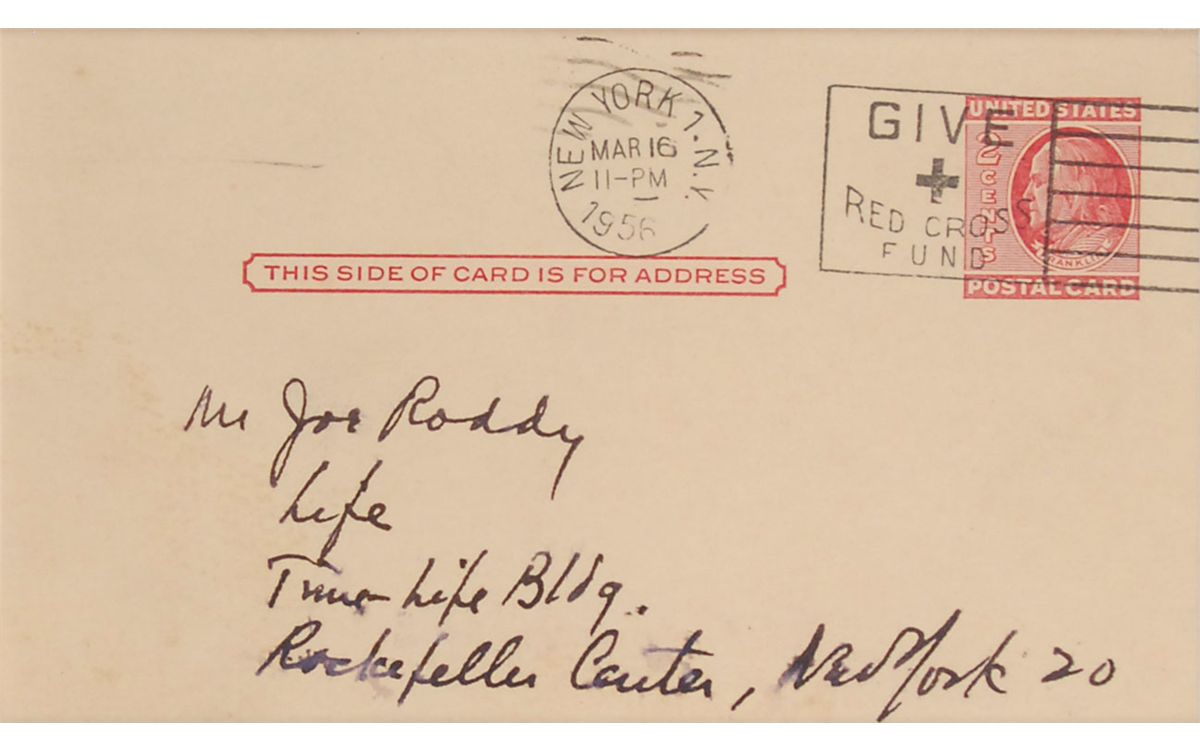 NEW YORK 1, N.Y.
MAR 16
11-PM
1956
GIVE
RED CROSS
FUND
UNITED STATES
2 CENTS
FRANKLIN
POSTAL CARD
THIS SIDE OF CARD IS FOR ADDRESS
Mr Joe Roddy
Life
Time-Life Bldg.
Rockefeller Center, New York 20